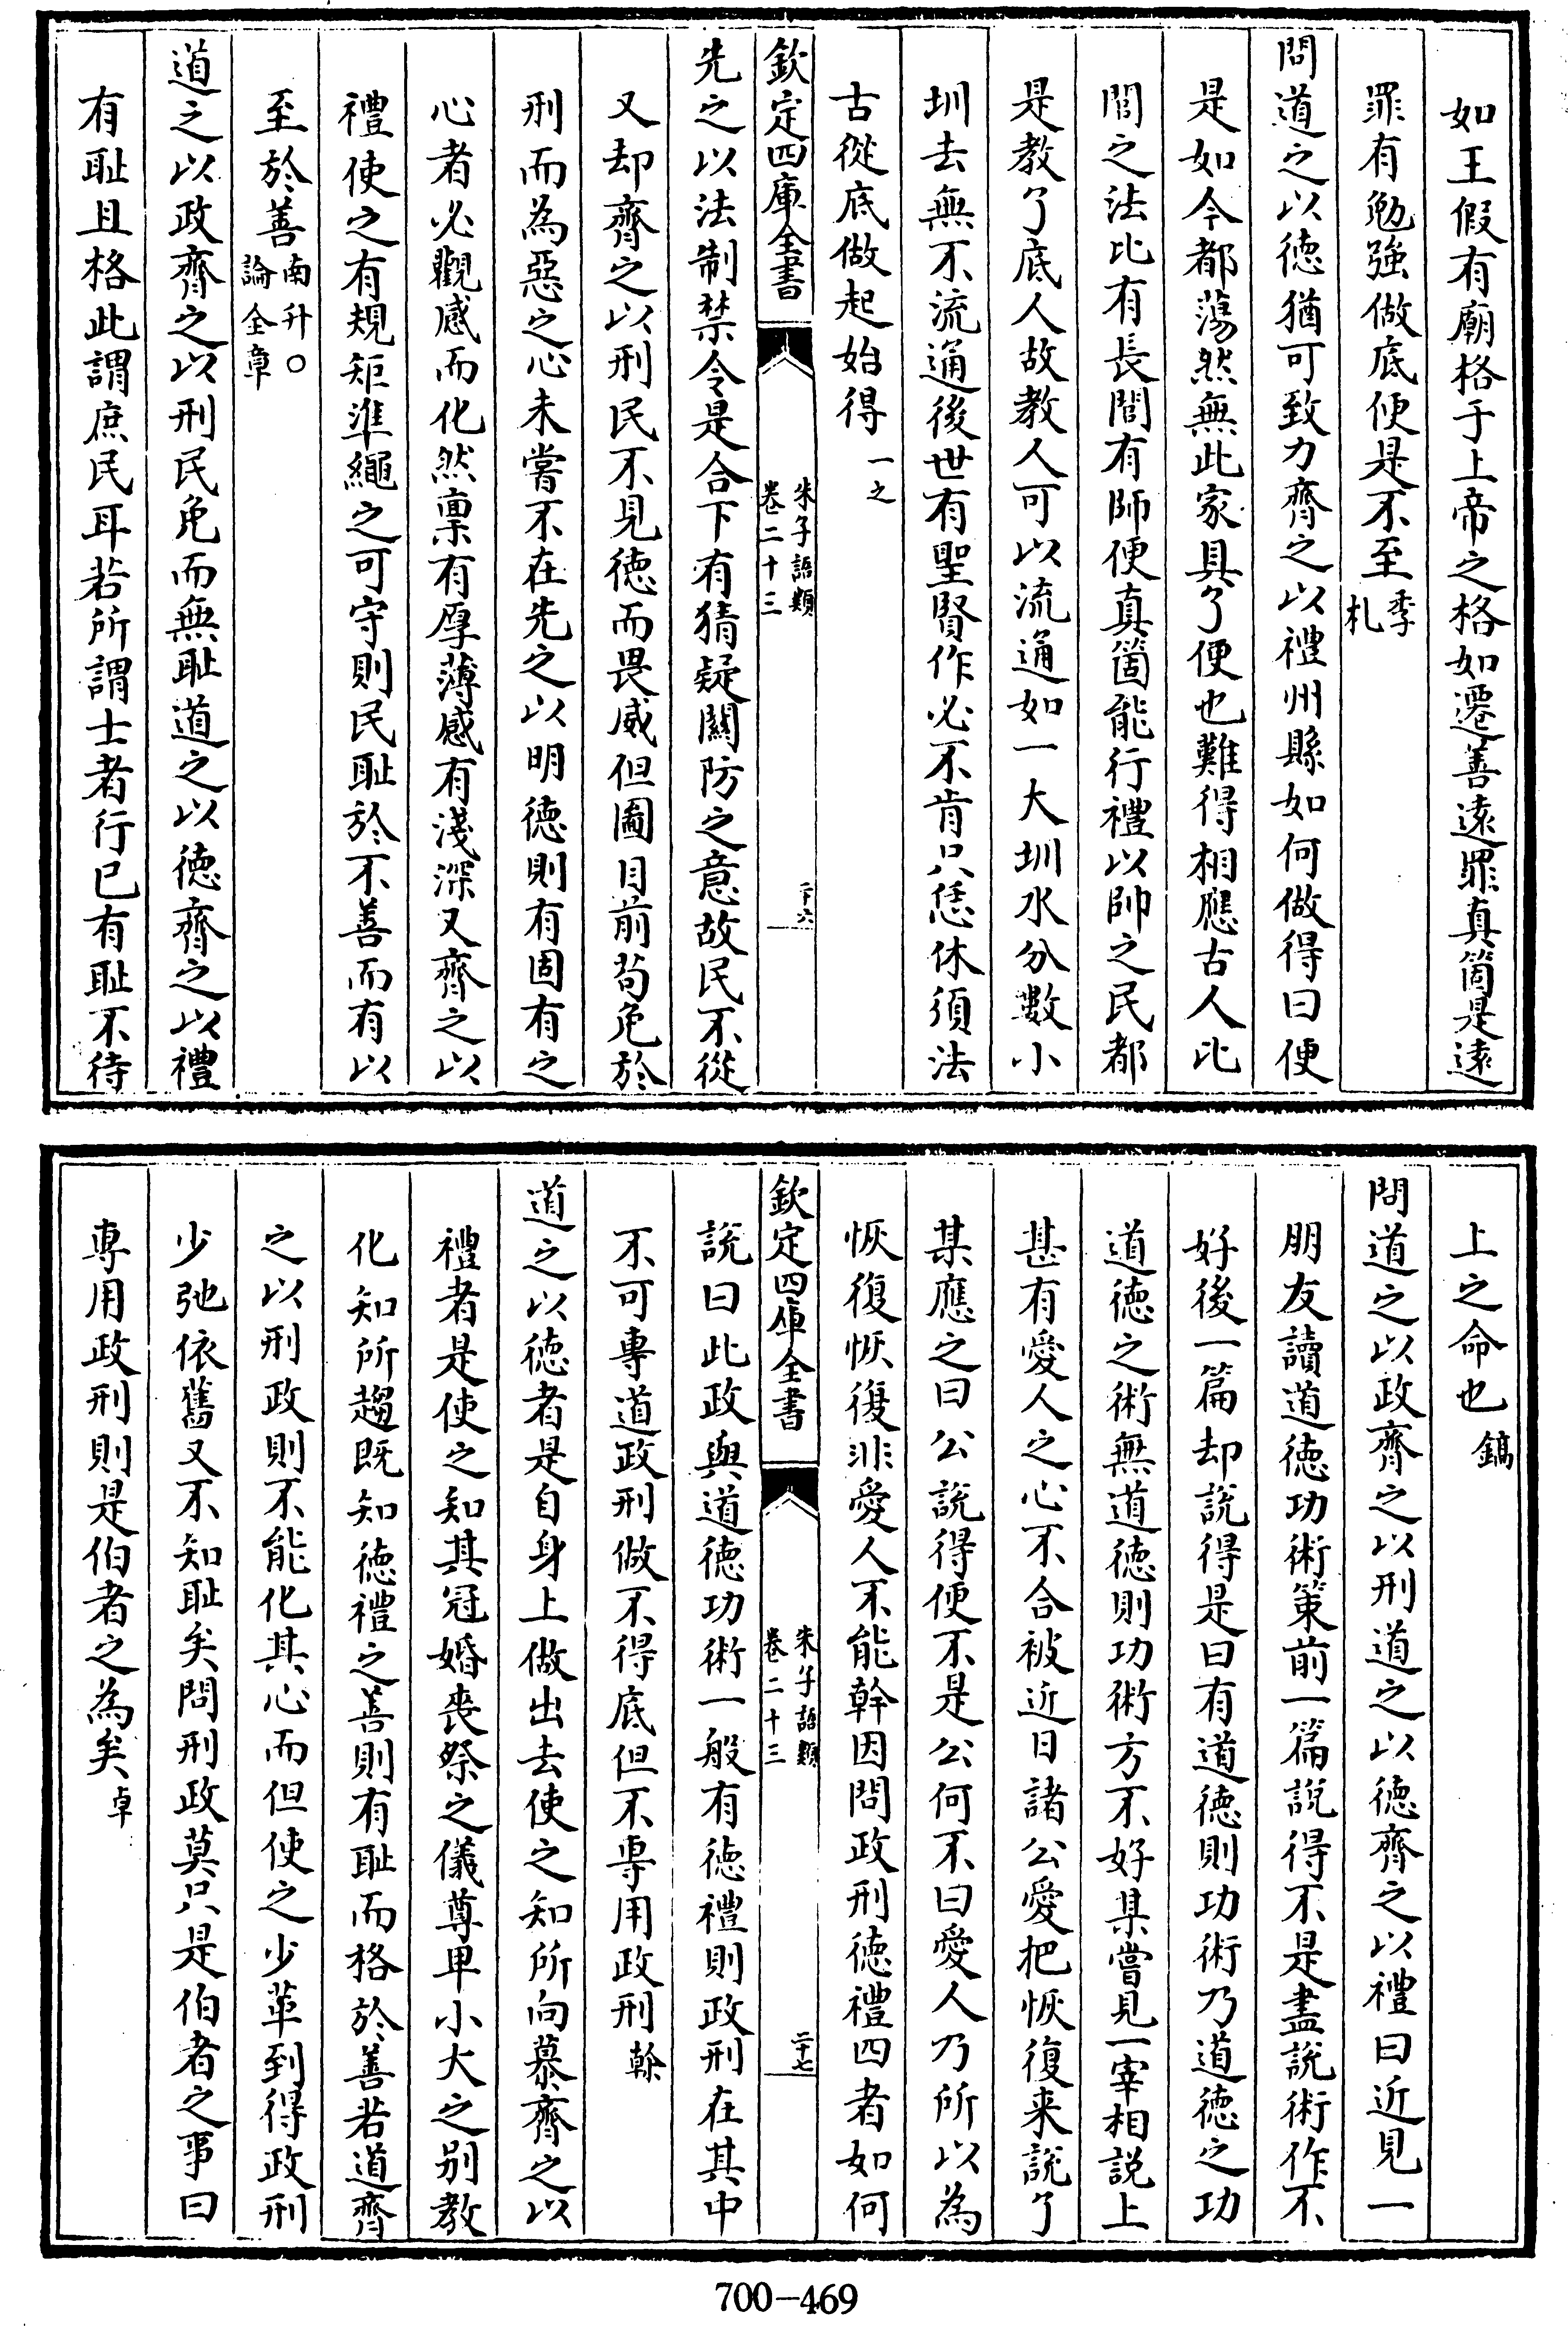 如王假有廟格于上帝之格如遷善遠罪真箇是遠
罪有勉強做底便是不至季札
問道之以徳猶可致力齊之以禮州縣如何做得曰便
是如今都蕩然無此家具了便也難得相應古人比
閭之法比有長閭有師便真箇能行禮以帥之民都
是教了底人故教人可以流通如一大圳水分數小
圳去無不流通後世有聖賢作必不肯只恁休須法
古從底做起始得一之
欽定四庫全書 朱子語類卷二十三 二十六
先之以法制禁令是合下有猜疑關防之意故民不從
又却齊之以刑民不見徳而畏威但圖目前苟免於
刑而為惡之心未嘗不在先之以明徳則有固有之
心者必觀感而化然稟有厚薄感有淺深又齊之以
禮使之有規矩準繩之可守則民恥於不善而有以
至於善南升○論全章
道之以政齊之以刑民免而無恥道之以徳齊之以禮
有恥且格此謂庶民耳若所謂士者行已有恥不待
上之命也鎬
問道之以政齊之以刑道之以徳齊之以禮曰近見一
朋友讀道徳功術策前一篇說得不是盡說術作不
好後一篇却說得是曰有道徳則功術乃道徳之功
道徳之術無道徳則功術方不好某嘗見一宰相説上
甚有愛人之心不合被近日諸公愛把恢復来說了
某應之曰公說得便不是公何不曰愛人乃所以為
恢復恢復非愛人不能幹因問政刑徳禮四者如何
欽定四庫全書 朱子語類卷二十三 二十七
説曰此政與道徳功術一般有徳禮則政刑在其中
不可專道政刑做不得底但不專用政刑榦
道之以徳者是自身上做出去使之知所向慕齊之以
禮者是使之知其冠婚喪祭之儀尊卑小大之别教
化知所趨既知徳禮之善則有恥而格於善若道齊
之以刑政則不能化其心而但使之少革到得政刑
少弛依舊又不知恥矣問刑政莫只是伯者之事曰
專用政刑則是伯者之為矣卓
700-469